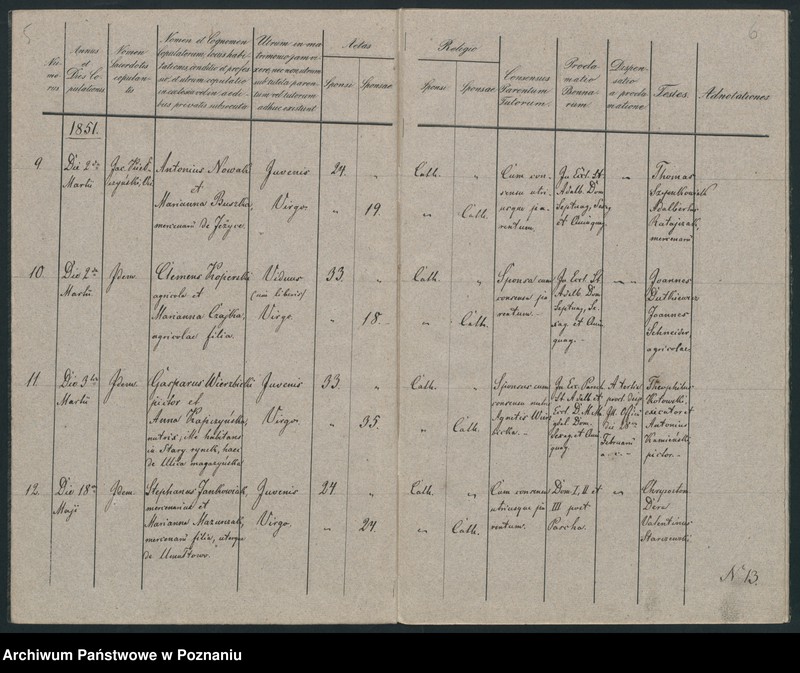 5
6
Nu
me
rus
Annus
et
Dies Co
pulationis
Nomen
Sacerdotis
copulan-
tis
Nomen et Cognomen
Copulatorum, locus habi-
tationis, conditio et profes
sio, et utrum copulatio
in ecclesia vel in aedi-
bus privatis subsecuta
Utrum in ma
trimonio jam vi-
xere, nec non utrum
sub tutela paren-
tum vel tutorum
adhuc existunt
Aetas
Sponsi
Sponsae
Religio
Sponsi
Sponsae
Consensus
Parentum
Tutorum
Procla
matio
Banno-
rum
Dispen-
satio
a procla
matione
Testes
Adnotationes
1851.
9
Die 2da
Martii
Antonius Nowak
et
Marianna Buszka
mercenarii de Jeżyce
Juvenis
Virgo
24.
19.
Cath.
Cath.
Cum con-
sensu utri
usque pa-
rentum.
In Eccl. St.
Adalb. Dom
Septuag, Sexag
et Quinquag.
Thomas
Adalbertus
Ratajczak,
mercenarii
10.
Die 2da
Martii
Idem
Clemens
agricola et
Marianna Czajka,
agricolae filia.
Viduus
Virgo.
33.
18.
Cath.
Cath.
Sponsa cum
consensu pa
rentum.
In Eccl. St.
Adalb. Dom
Septuag, Se-
xag. et Quin
quag.
Joannes
Dutkiewicz
Joannes
Schneider,
agricolae
11
Die 3tia
Martii
Idem
Gasparus Wierzbicki
pictor et
Anna
ille habitans
in Stary rynek, haec
de Ulica magazyńska
Juvenis
Virgo.
33.
35.
Cath.
Cath.
Sponsus cum
consensu matris
Agnetis Wierz
bicka.
In Ec. Paroch.
St. Adalb. et
Eccl. D. M. M
Dom.
Sexag. et Quin
quag.
A tertia
procl. disp.
Februarii
a. c.
Theophilus
Kotowski
et
Antonius
Kamieński,
pictor.
12.
Die 18va
Maji
Idem.
Stephanus Jankowiak,
mercenarius et
Marianna Mazurczak,
mercenarii filia, uterque
de Umultowo.
Juvenis
Virgo.
24
24.
Cath.
Cath.
Cum consensu
utriusque pa
rentum.
Dom. I, II et
III post
Pascha.
Chrysostom
Dera
Valentinus
N. 13.
Archiwum Państwowe w Poznaniu